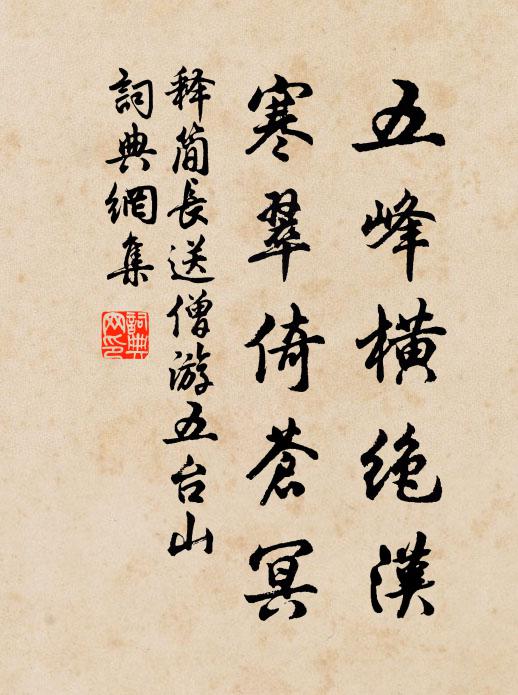 五峰横絶漢
寒翠倚蒼冥
释简長送僧游五台山
詞典網集
詞典網印